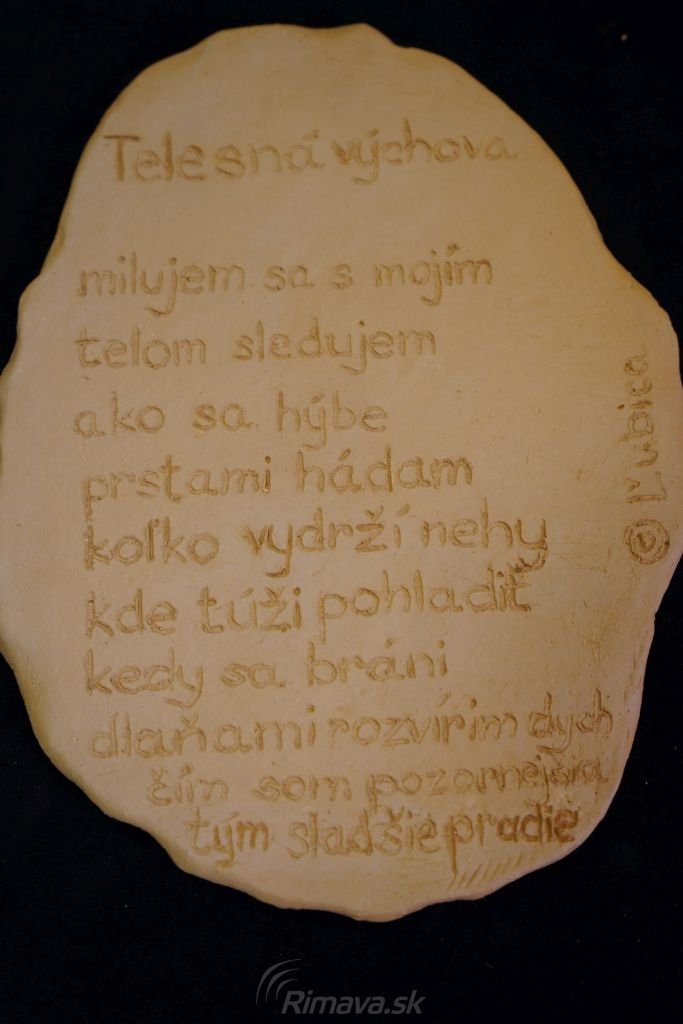 Telesná výchova
milujem sa s mojím
telom sledujem
ako sa hýbe
prstami hádam
koľko vydrží nehy
kde túži pohladiť
kedy sa bráni
dlaňami rozvírim dych
čím som pozornejšia
tým sladšie pradie
© Ľubica
Rimava.sk